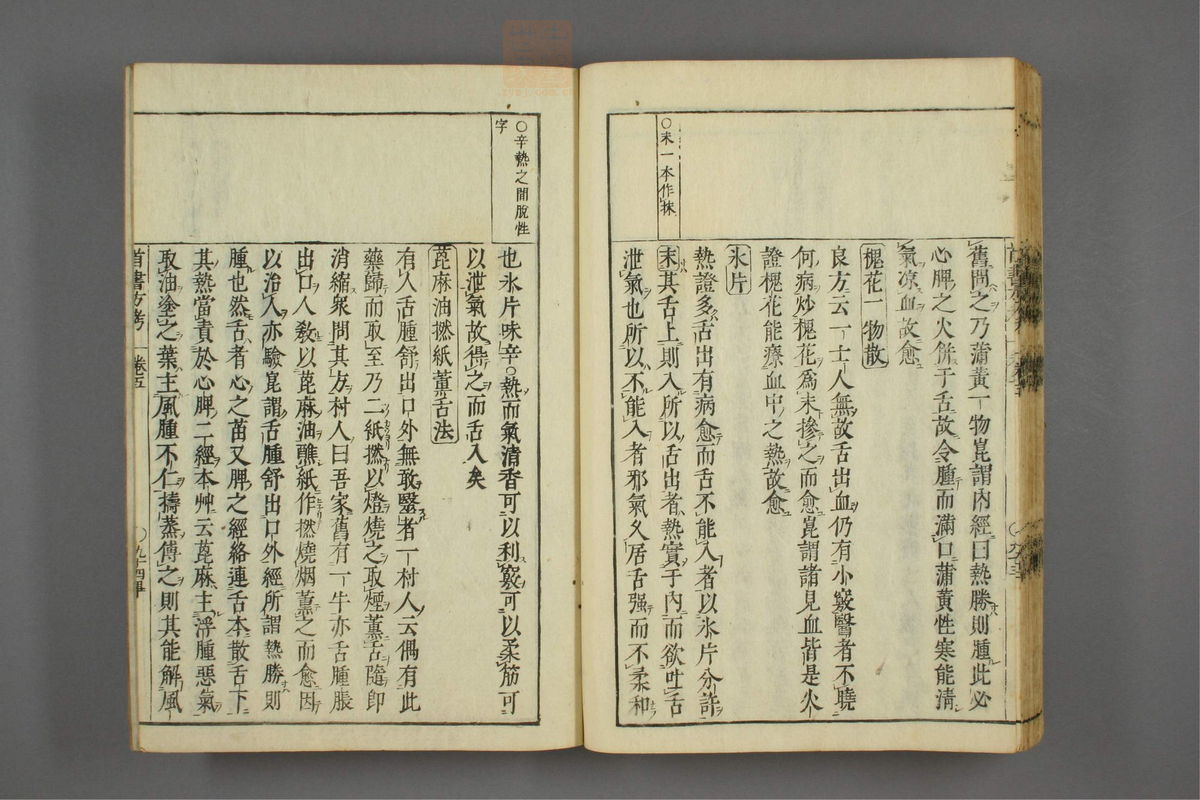 ○末一本作抹
舊問之乃蒲黃一物崑謂內經曰熱勝則腫此必
心脾之火併于舌故令腫而滿口蒲黃性寒能淸
氣凉血故愈
槐花一物散
良方云一士人無故舌出血仍有小竅醫者不曉
何病炒槐花爲末摻之而愈崑謂諸見血皆是火
證槐花能療血中之熱故愈
氷片
熱證多舌出有病愈而舌不能入者以氷片分許
末其舌上則入所以舌出者熱實于內而欲吐舌
泄氣也所以不能入者邪氣久居舌强而不柔和
○辛熱之間脫性
字
也氷片味辛○熱而氣清香可以利竅可以柔筋可
以泄氣故得之而舌入矣
蓖麻油撚紙薰舌法
有人舌腫舒出口外無敢醫者一村人云偶有此
藥歸而取至乃二紙撚以燈燒之取煙薰舌隨即
消縮衆問其方村人曰吾家舊有一牛亦舌腫脹
出口人敎以蓖麻油蘸紙作撚燒烟薰之而愈因
以治人亦驗崑謂舌腫舒出口外經所謂熱勝則
腫也然舌者心之苗又脾之經絡連舌本散舌下
其熱當責於心脾二經本艸云蓖麻主浮腫惡氣
取油塗之葉主風腫不仁擣蒸傅之則其能解風
首書方考
卷五
○九十四